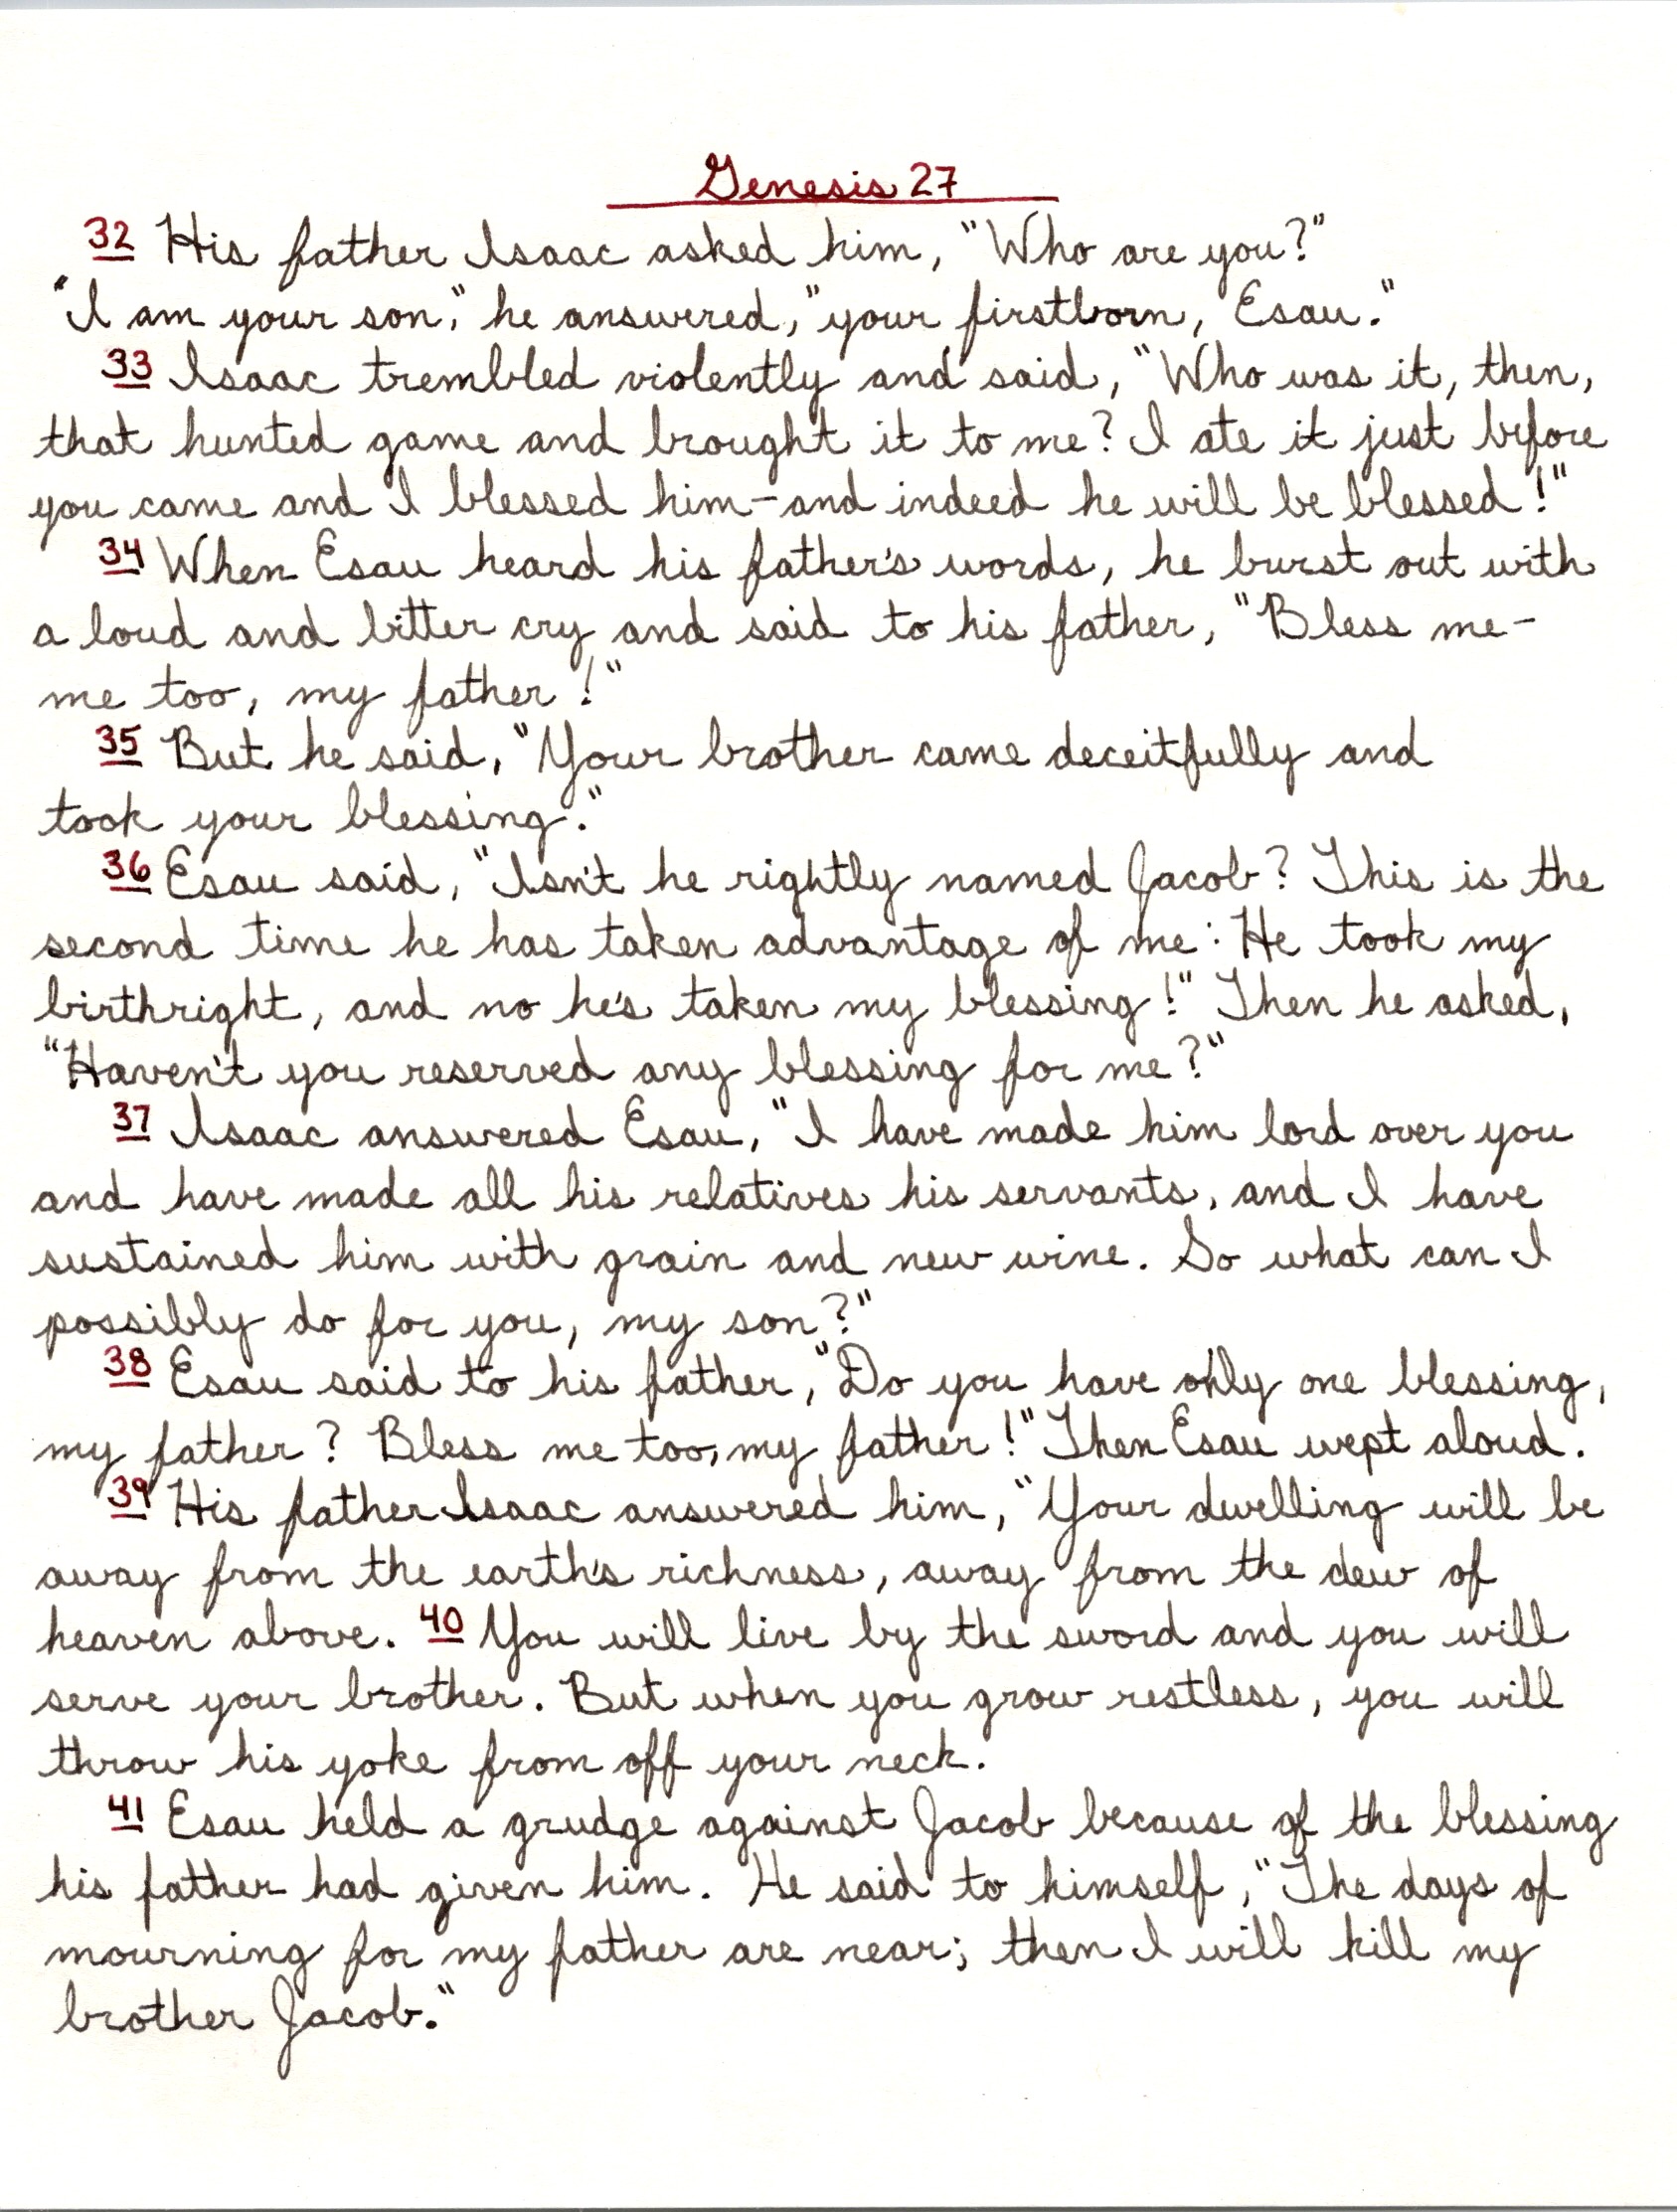 Genesis 27
32 His father Isaac asked him, "Who are you?"
"I am your son," he answered, "your firstborn, Esau."
33 Isaac trembled violently and said, "Who was it, then,
that hunted game and brought it to me? I ate it just before
you came and I blessed him-and indeed he will be blessed!"
34 When Esau heard his father's words, he burst out with
a loud and bitter cry and said to his father, "Bless me-
me too, my father!"
35 But he said, "Your brother came deceitfully and
took your blessing."
36 Esau said, "Isn't he rightly named Jacob? This is the
second time he has taken advantage of me: He took my
birthright, and no he's taken my blessing!" Then he asked,
"Haven't you reserved any blessing for me?"
37 Isaac answered Esau, "I have made him lord over you
and have made all his relatives his servants, and I have
sustained him with grain and new wine. So what can I
possibly do for you, my son?"
38 Esau said to his father, "Do you have only one blessing,
my father? Bless me too, my father!" Then Esau wept aloud.
39 His father Isaac answered him, "Your dwelling will be
away from the earth's richness, away from the dew of
heaven above. 40 You will live by the sword and you will
serve your brother. But when you grow restless, you will
throw his yoke from off your neck.
41 Esau held a grudge against Jacob because of the blessing
his father had given him. He said to himself, "The days of
mourning for my father are near; then I will kill my
brother Jacob."